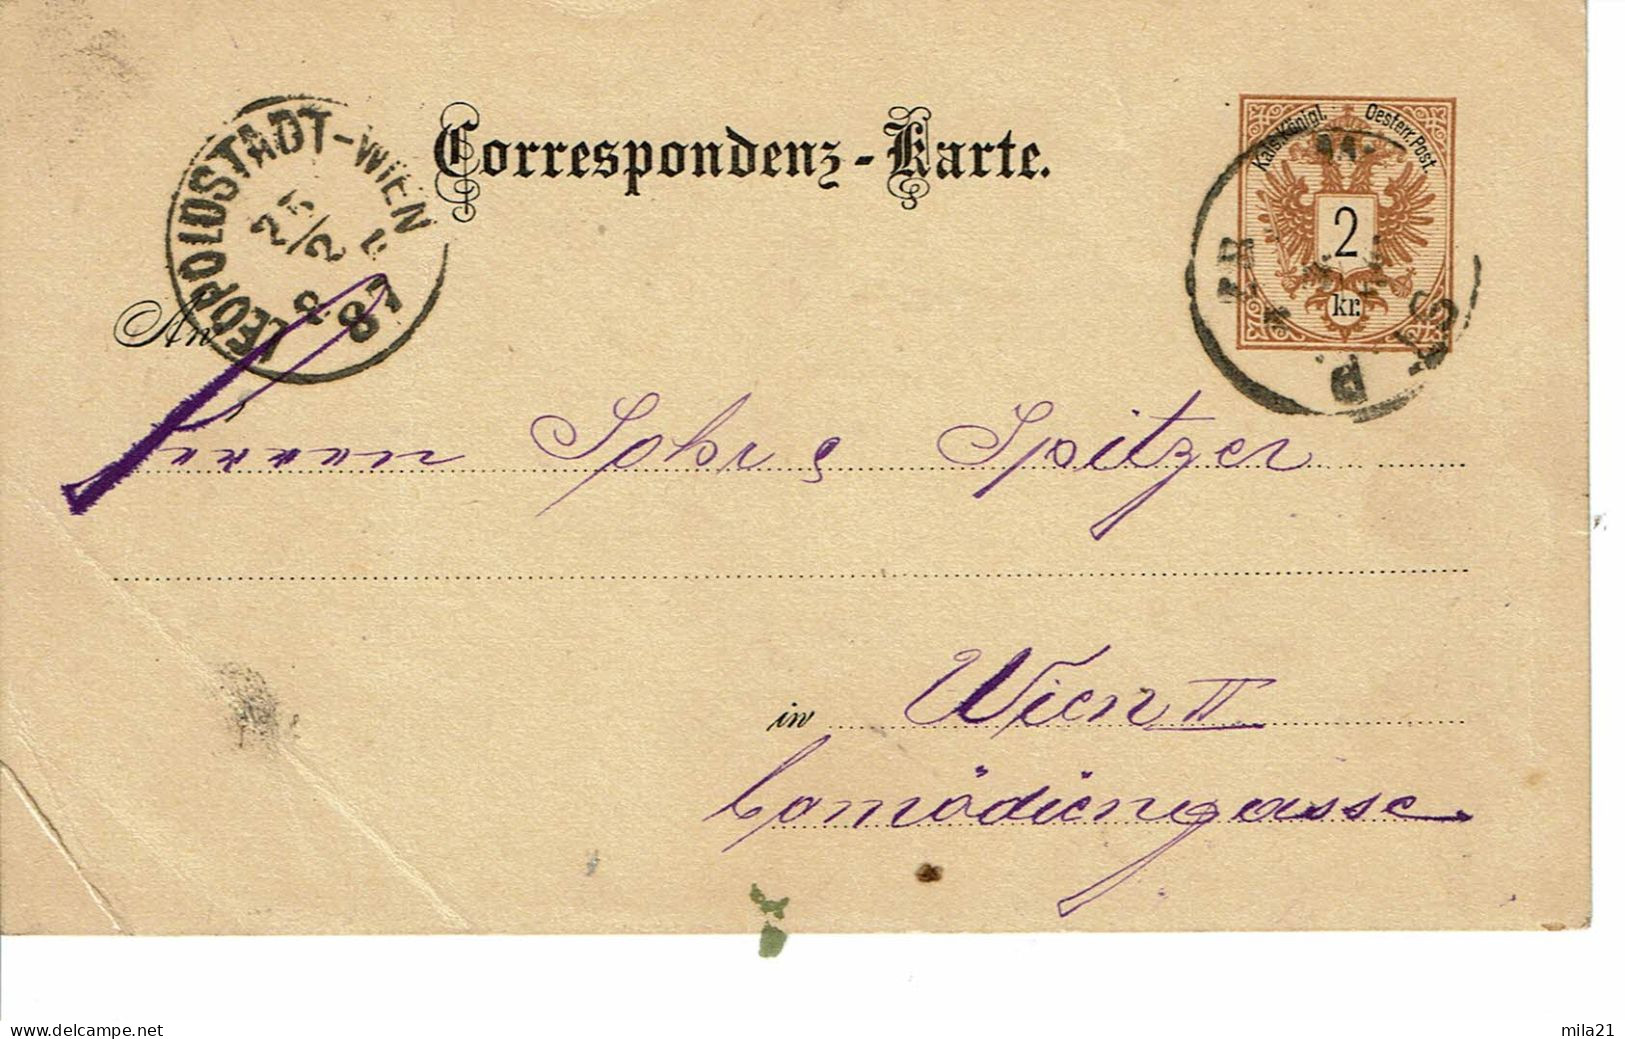 Correspondenz-Karte.
Kais. Königl. Oesterr. Post.
2
kr.
LEOPOLDSTADT-WIEN
25/2
87
An
Spitzer
in Wien II
Comödiengasse.
delcampe.net
mila21